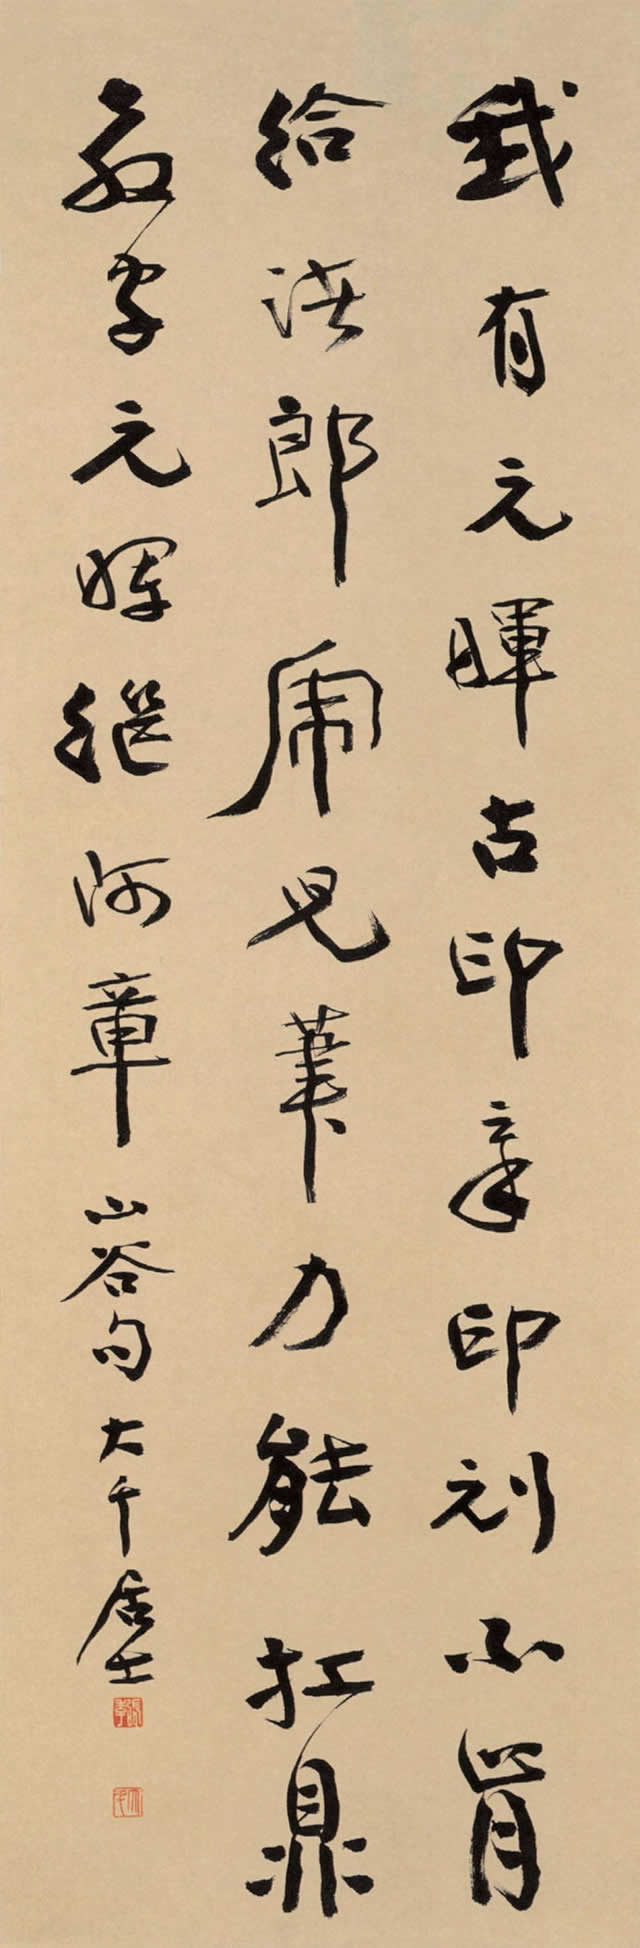 我有元暉古印章印刓不肯
給諸郎虎兒筆力能扛鼎
教字元暉繼阿章 山谷句 大千居士